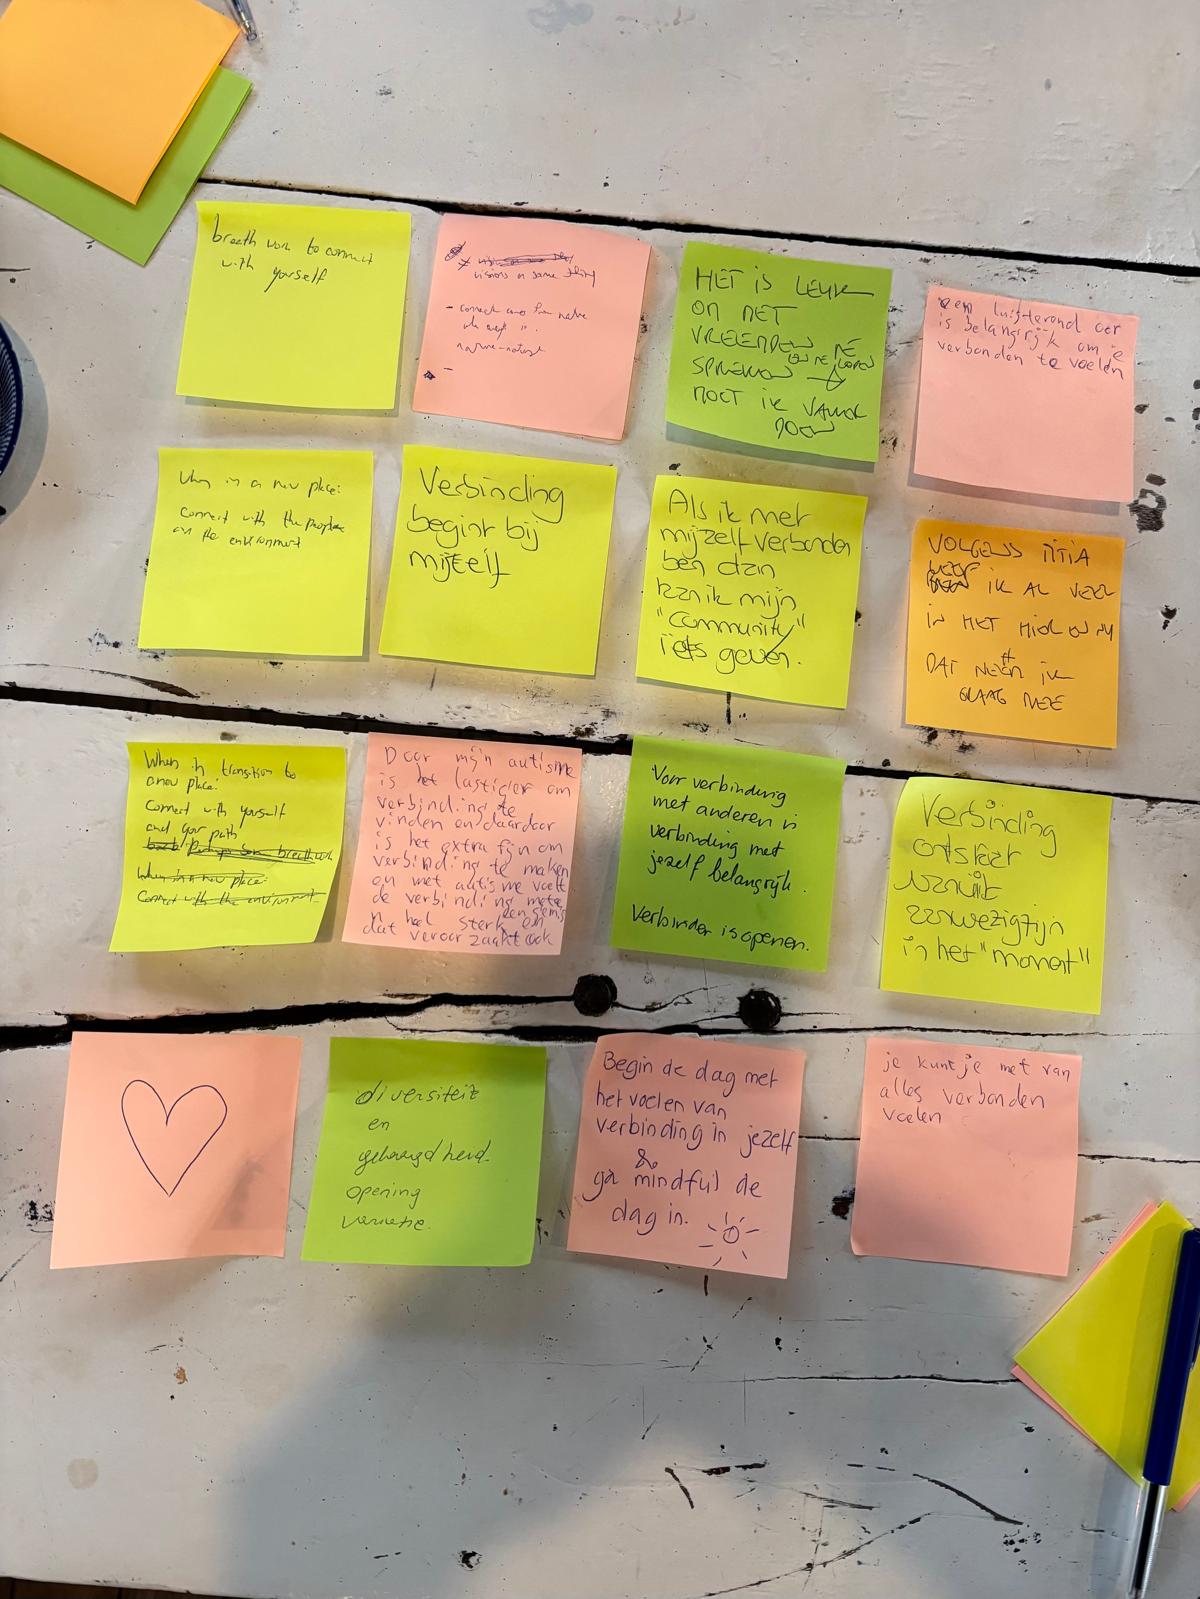 breath work to connect
with yourself
visions on same thing
- connect
nature-nature
HET IS LEUK
OM MET
VREEMDEN
SPREKEN →
MOET IK VAKER
DOEN
een luisterend oor
is belangrijk om je
verbonden te voelen
When in a new place:
Connect with the people
the environment
Verbinding
begint bij
mijzelf
Als ik met
mijzelf verbonden
ben dan
kan ik mijn
"community"
iets geven.
VOLGENS TITIA
IK AL VEEL
IN HET HIER EN NU
DAT NEEM IK
GRAAG MEE
When in transition to
a new place:
Connect with yourself
and your path
perhaps some breathwork
When in a new place:
Connect with the environment
Door mijn autisme
is het lastiger om
verbinding te
vinden en daardoor
is het extra fijn om
verbinding te maken
en met autisme voelt
de verbinding
heel sterk en
dat veroorzaakt ook
een gemis
Voor verbinding
met anderen is
verbinding met
jezelf belangrijk.
Verbinder is openen.
Verbinding
ontstaat
vanuit
aanwezigzijn
in het "moment"
diversiteit
en
gelaagdheid.
opening
variatie.
Begin de dag met
het voelen van
verbinding in jezelf
&
ga mindful de
dag in.
je kunt je met van
alles verbonden
voelen